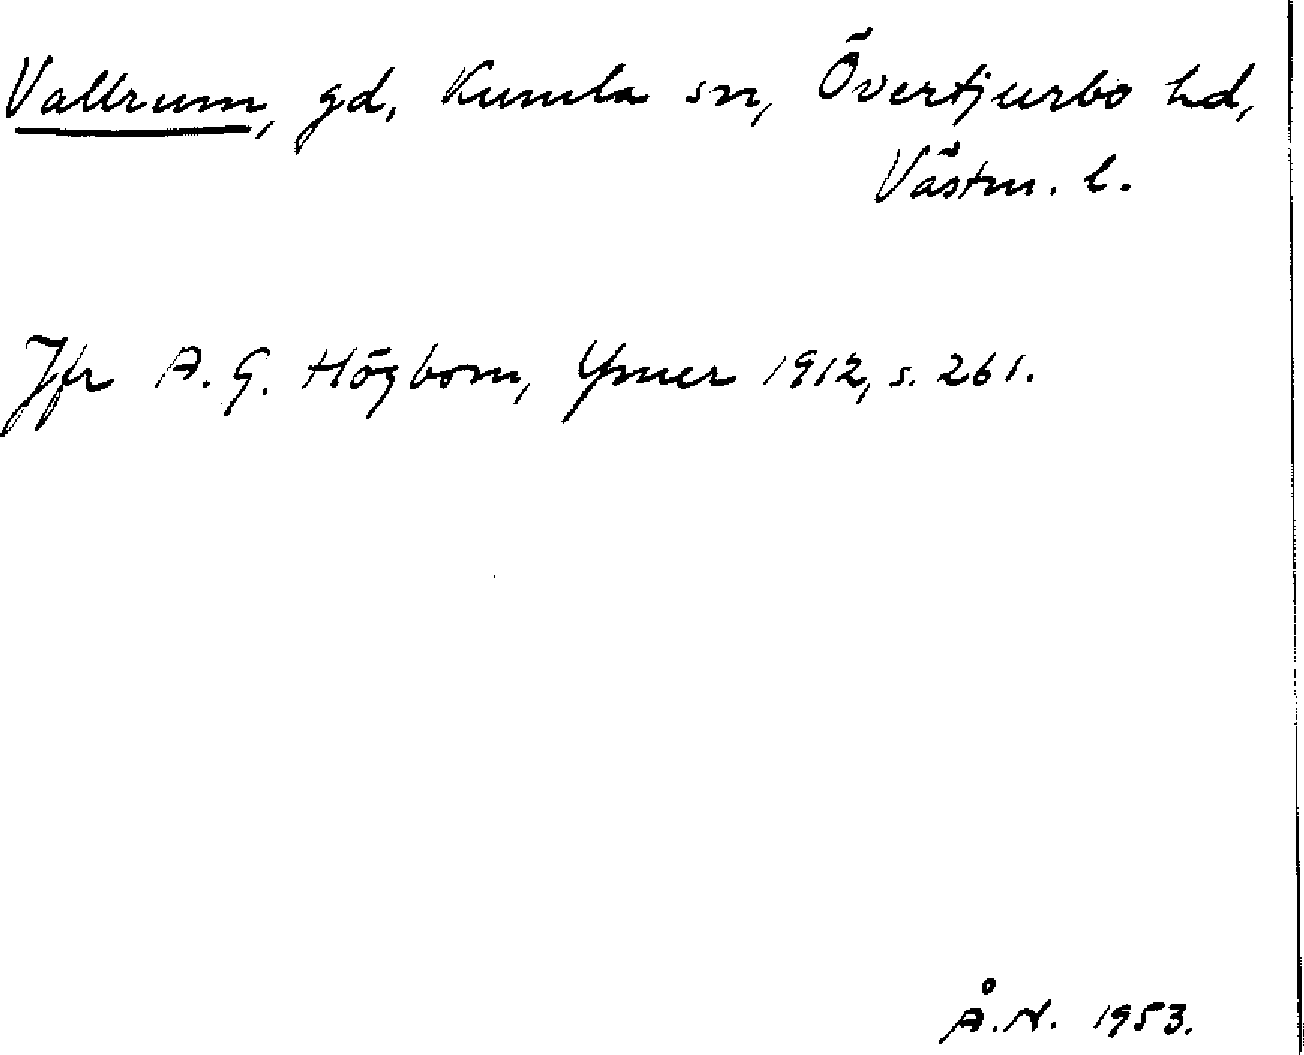 Vallrum, gd, Kumla sn, Övertjurbo hd,
Västm. l.
Jfr A. G. Högbom, Ymer 1912, s. 261.
Å.N. 1953.